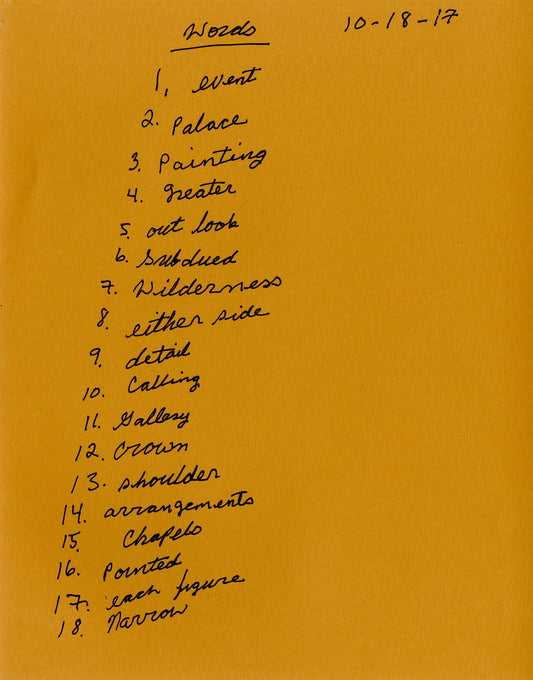 Words 10-18-17
1, event
2. Palace
3. Painting
4. greater
5. out look
6. Subdued
7. Wilderness
8. either side
9. detail
10. Calling
11. Gallery
12. Crown
13. shoulder
14. arrangements
15. Chapels
16. Pointed
17. each figure
18. Narrow